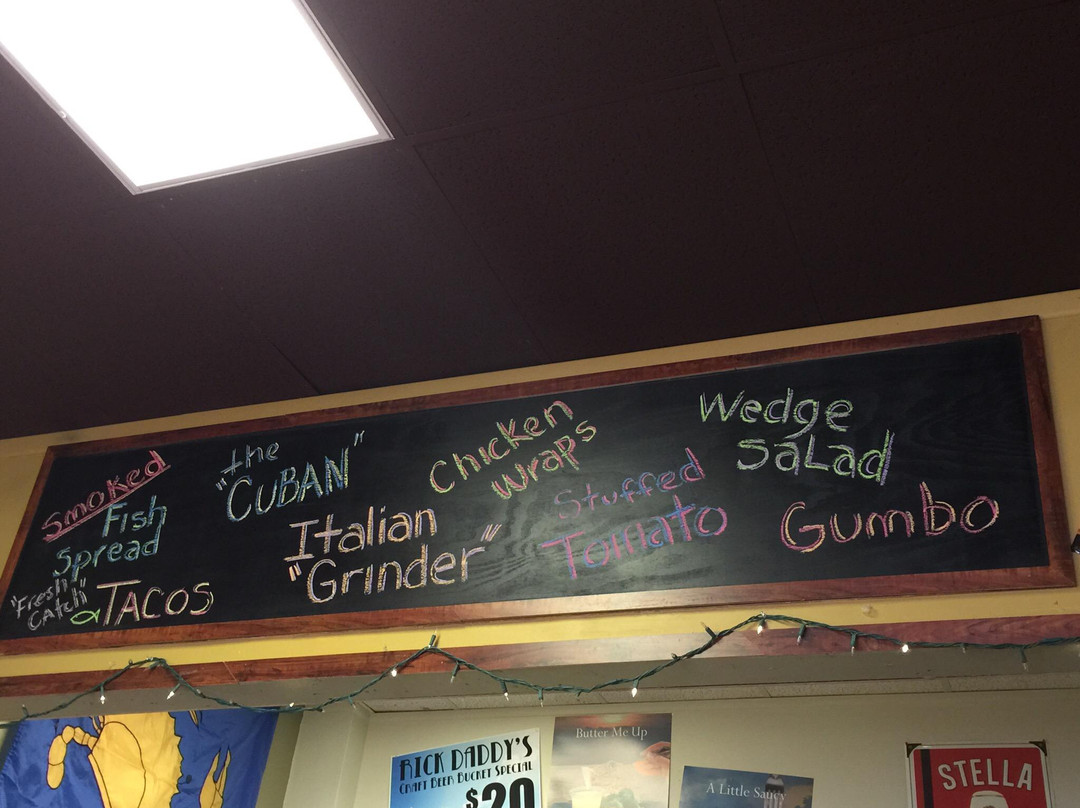 Smoked
Fish
Spread
"Fresh
Catch"
TACOS
"the
CUBAN"
Italian
"Grinder"
Chicken
Wraps
Stuffed
Tomato
Wedge
SaLad
Gumbo
RICK DADDY'S
CRAFT BEER BUCKET SPECIAL
$20
Butter Me Up
A Little Saucy
STELLA